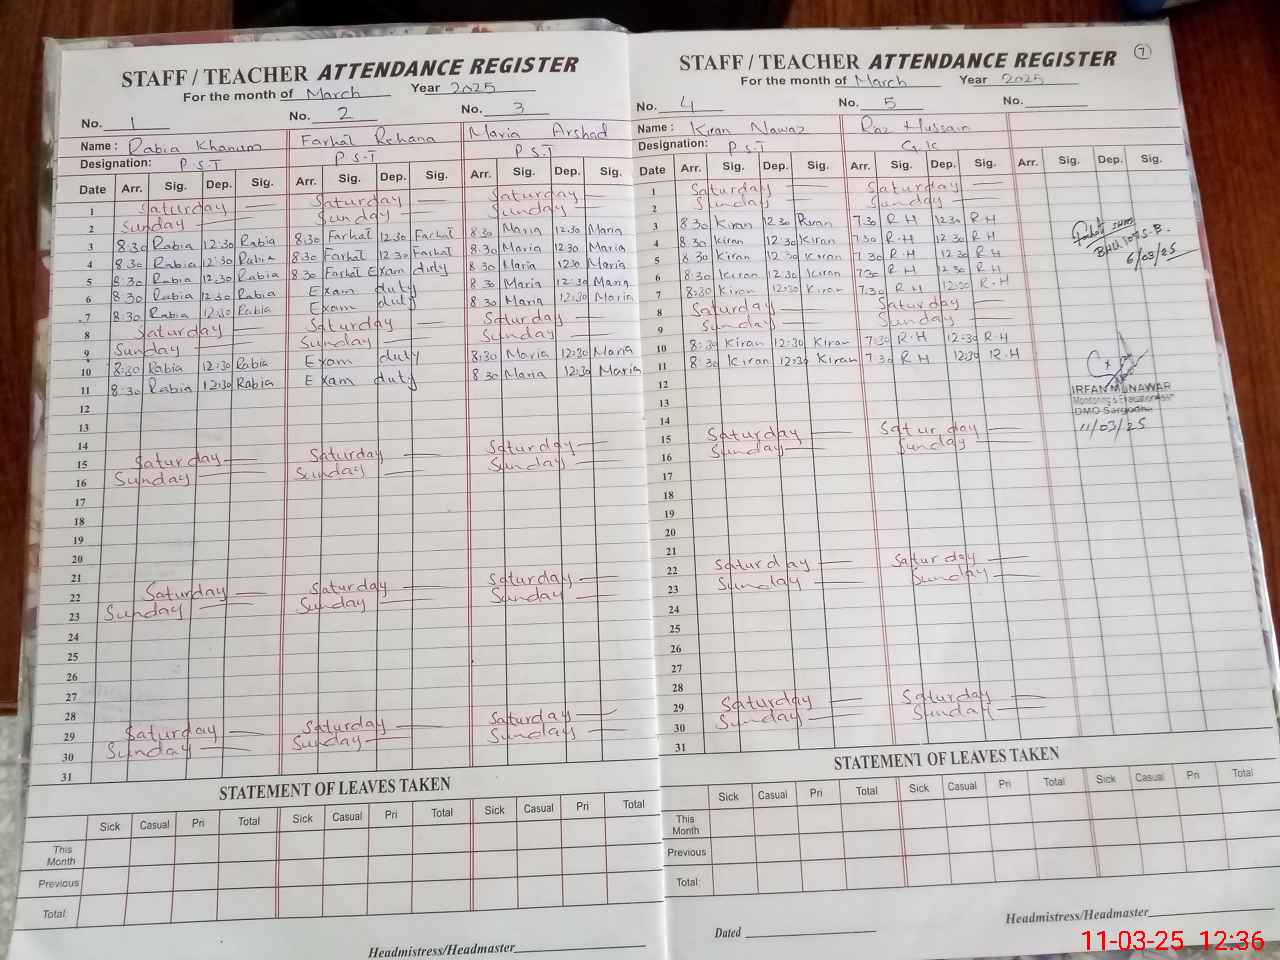 STAFF / TEACHER ATTENDANCE REGISTER
For the month of March Year 2025
No. 1 No. 2 No. 3
Name : Rabia Khanum Farhat Rehana Maria Arshad
Designation: P.S.T P S.T P S.T
Date Arr. Sig. Dep. Sig. Arr. Sig. Dep. Sig. Arr. Sig. Dep. Sig.
1 Saturday Saturday Saturday
2 Sunday Sunday Sunday
3 8:30 Rabia 12:30 Rabia 8:30 Farhat 12:30 Farhat 8:30 Maria 12:30 Maria
4 8:30 Rabia 12:30 Rabia 8:30 Farhat 12:30 Farhat 8:30 Maria 12:30 Maria
5 8:30 Rabia 12:30 Rabia 8:30 Farhat Exam duty 8:30 Maria 12:30 Maria
6 8:30 Rabia 12:30 Rabia Exam duty 8:30 Maria 12:30 Maria
7 8:30 Rabia 12:30 Rabia Exam duty 8:30 Maria 12:30 Maria
8 Saturday Saturday Saturday
9 Sunday Sunday Sunday
10 8:30 Rabia 12:30 Rabia Exam duty 8:30 Maria 12:30 Maria
11 8:30 Rabia 12:30 Rabia Exam duty 8:30 Maria 12:30 Maria
12
13
14
15 Saturday Saturday Saturday
16 Sunday Sunday Sunday
17
18
19
20
21
22 Saturday Saturday Saturday
23 Sunday Sunday Sunday
24
25
26
27
28
29 Saturday Saturday Saturday
30 Sunday Sunday Sunday
31
STATEMENT OF LEAVES TAKEN
Sick Casual Pri Total Sick Casual Pri Total Sick Casual Pri Total
This Month
Previous
Total:
Headmistress/Headmaster
STAFF / TEACHER ATTENDANCE REGISTER 7
For the month of March Year 2025
No. 4 No. 5 No.
Name : Kiran Nawaz Raz Hussain
Designation: P.S.T
Date Arr. Sig. Dep. Sig. Arr. Sig. Dep. Sig. Arr. Sig. Dep. Sig.
1 Saturday Saturday
2 Sunday Sunday
3 8:30 Kiran 12:30 Kiran 7:30 R.H 12:30 R.H
4 8:30 Kiran 12:30 Kiran 7:30 R.H 12:30 R.H
5 8:30 Kiran 12:30 Kiran 7:30 R.H 12:30 R.H
6 8:30 Kiran 12:30 Kiran 7:30 R.H 12:30 R.H
7 8:30 Kiran 12:30 Kiran 7:30 R.H 12:30 R.H
8 Saturday Saturday
9 Sunday Sunday
10 8:30 Kiran 12:30 Kiran 7:30 R.H 12:30 R.H
11 8:30 Kiran 12:30 Kiran 7:30 R.H 12:30 R.H
12
13
14
15 Saturday Saturday
16 Sunday Sunday
17
18
19
20
21
22 Saturday Saturday
23 Sunday Sunday
24
25
26
27
28
29 Saturday Saturday
30 Sunday Sunday
31
6/03/25
IRFAN MUNAWAR
DMO Sargodha
11/03/25
STATEMENT OF LEAVES TAKEN
Sick Casual Pri Total Sick Casual Pri Total Sick Casual Pri Total
This Month
Previous
Total:
Headmistress/Headmaster
Dated
11-03-25 12:36